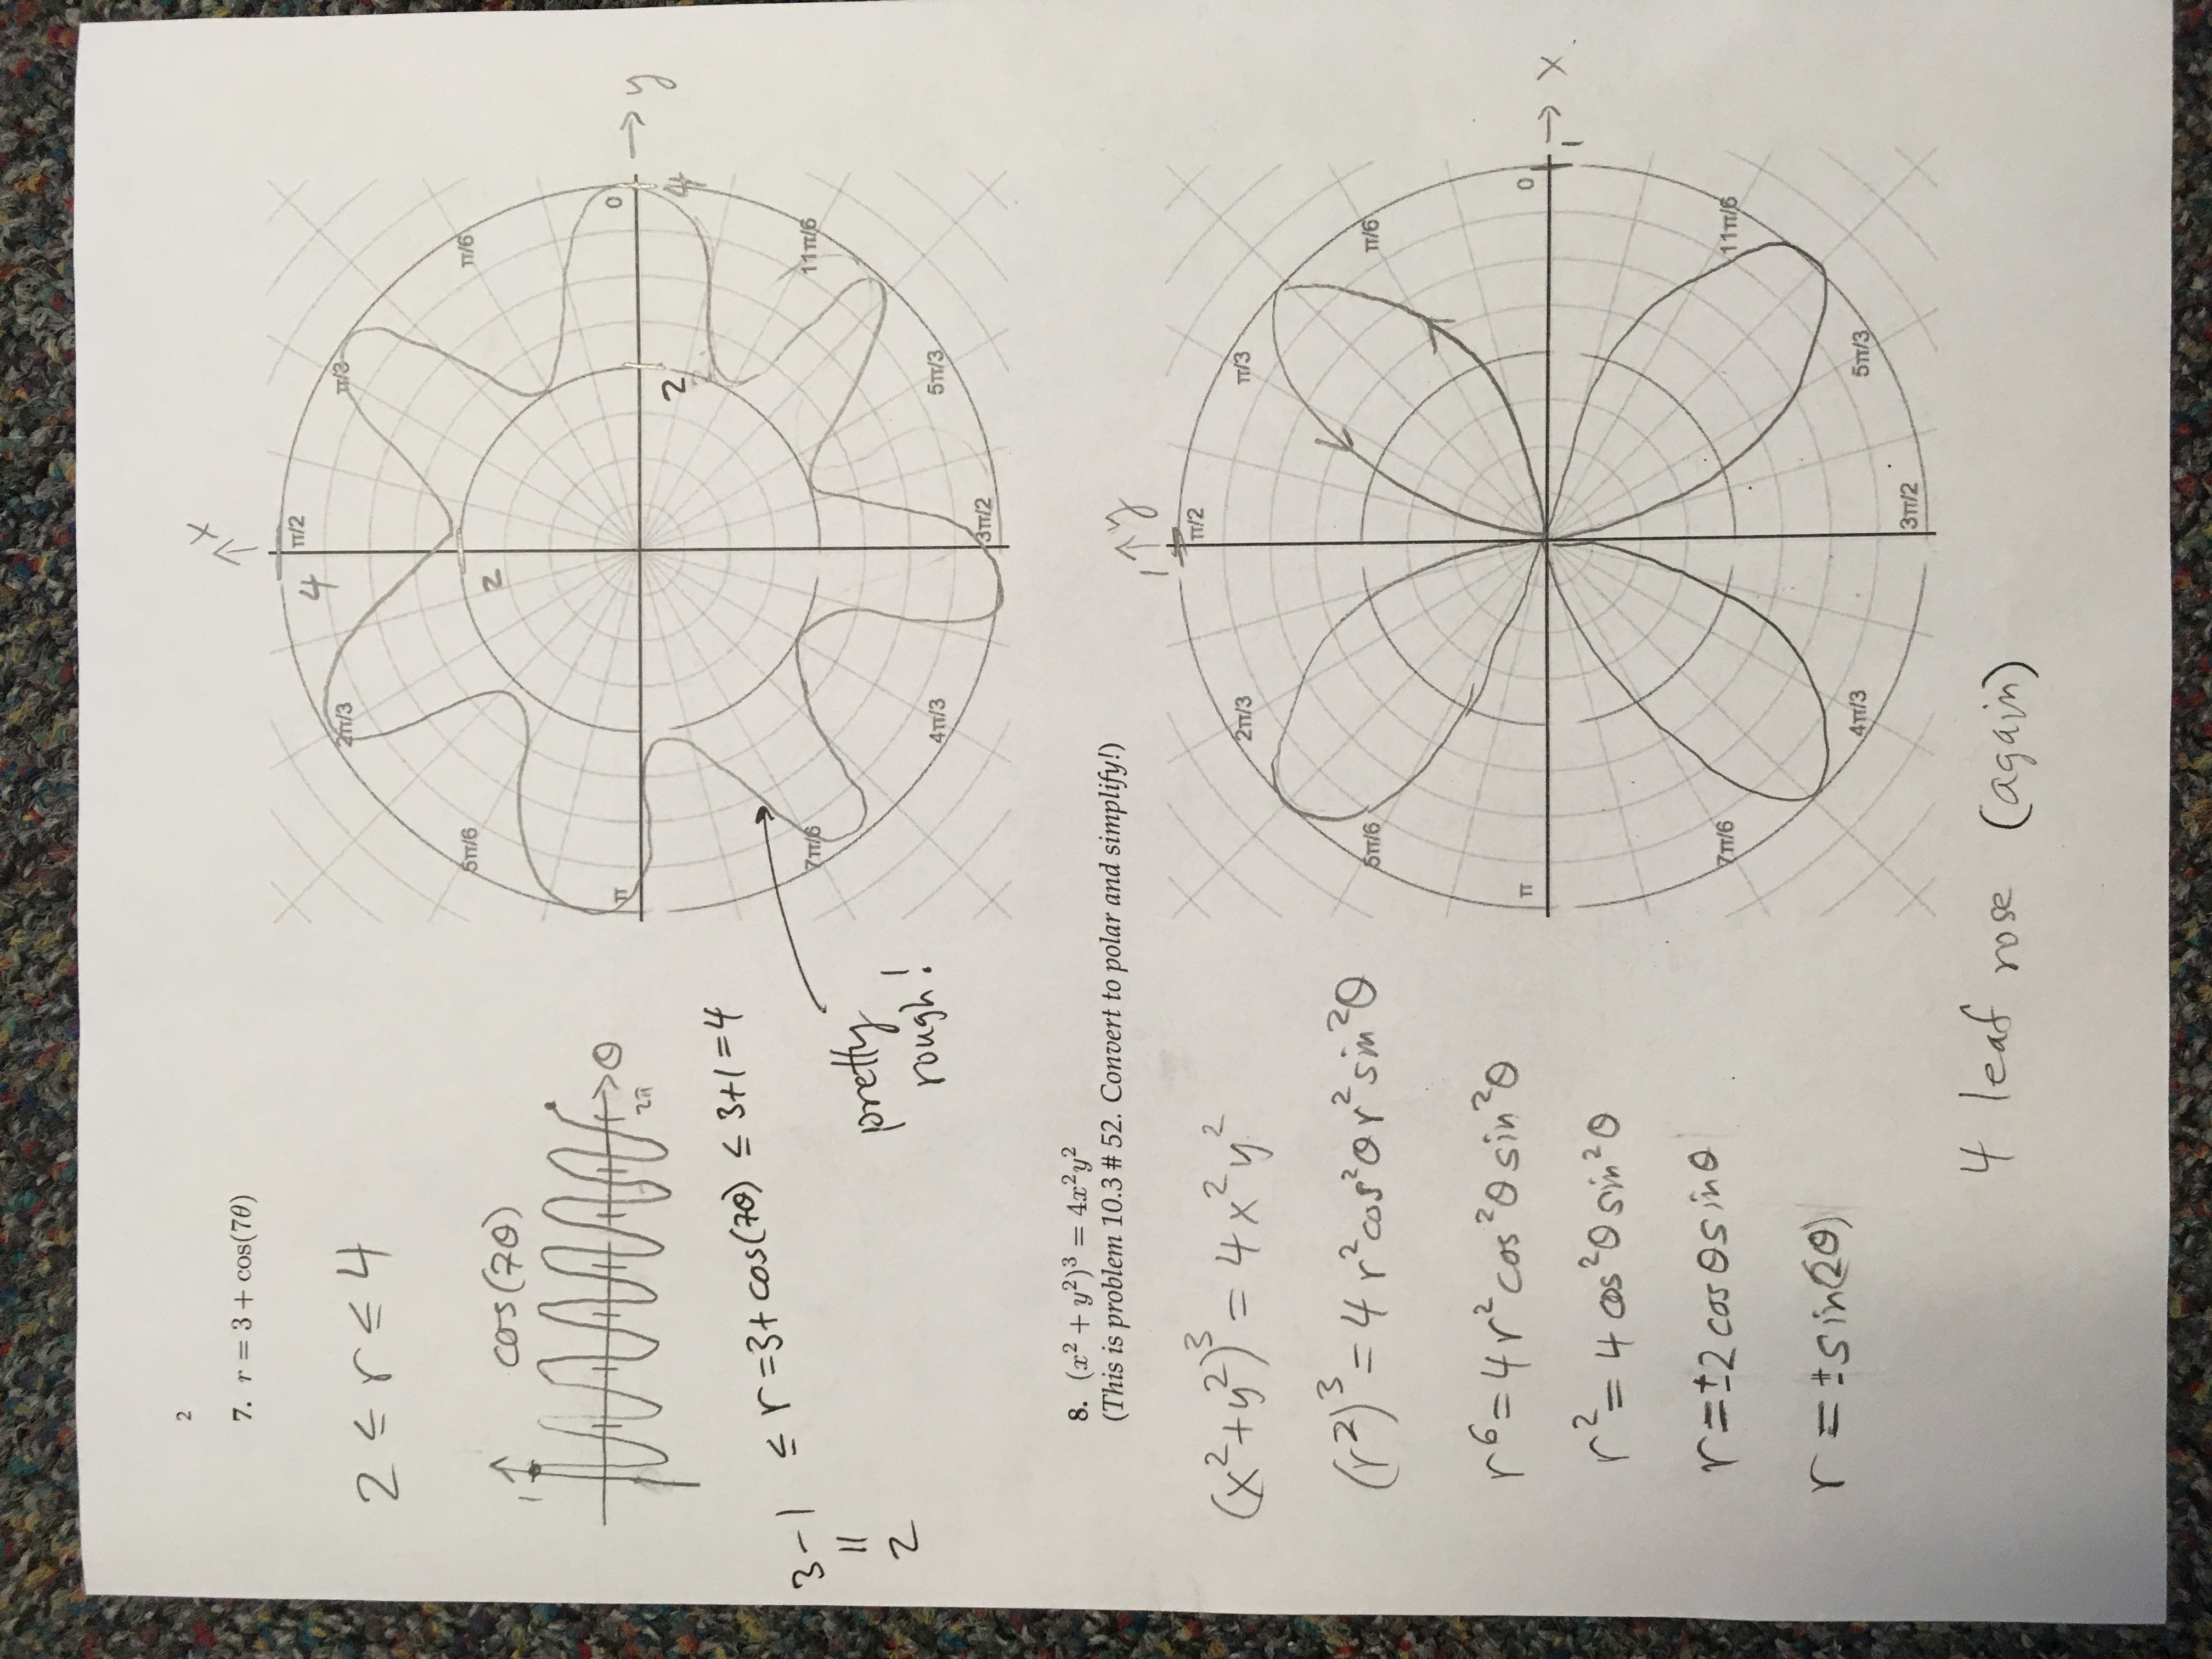 2
7. r = 3 + cos(7θ)
2 ≤ r ≤ 4
cos(7θ)
1
θ
2π
3-1 ≤ r = 3 + cos(7θ) ≤ 3+1 = 4
||
2
pretty
rough!
x
4
π/2
2π/3
π/3
5π/6
π/6
2
π
0
y
2
4
7π/6
11π/6
4π/3
5π/3
3π/2
8. (x² + y²)³ = 4x²y²
(This is problem 10.3 # 52. Convert to polar and simplify!)
(x²+y²)³ = 4x²y²
(r²)³ = 4 r²cos²θ r²sin²θ
r⁶ = 4r² cos²θ sin²θ
r² = 4 cos²θ sin²θ
r = ±2 cosθ sinθ
r = ± sin(2θ)
1
y
π/2
2π/3
π/3
5π/6
π/6
π
0
1
x
7π/6
11π/6
4π/3
5π/3
3π/2
4 leaf rose (again)